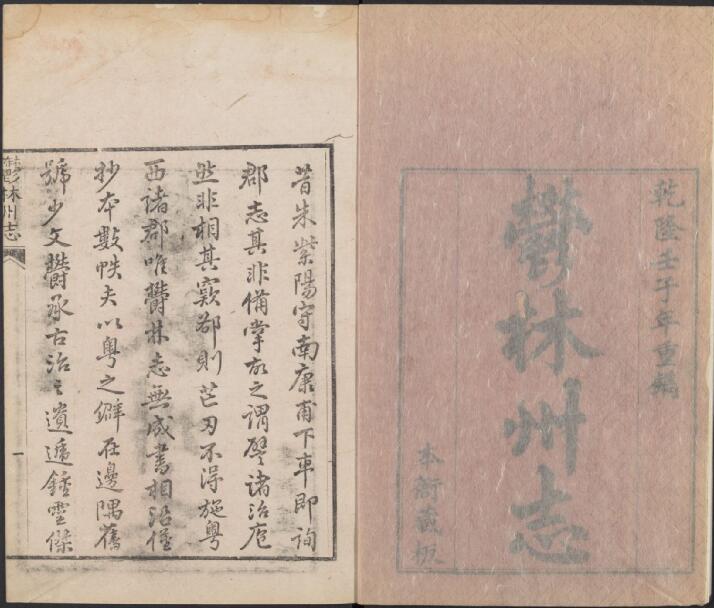 乾隆壬子年重編
鬱林州志
本衙藏板
昔朱紫陽守南康甫下車即詢
郡志其非備掌故之謂譬諸治庖
然非相其窾郤則芒刃不得施粵
西諸郡唯鬱林志無成書相沿僅
抄本數帙夫以粵之僻在邊隅舊
號少文鬱承古治之遺遞鍾靈傑
鬱林州志
一